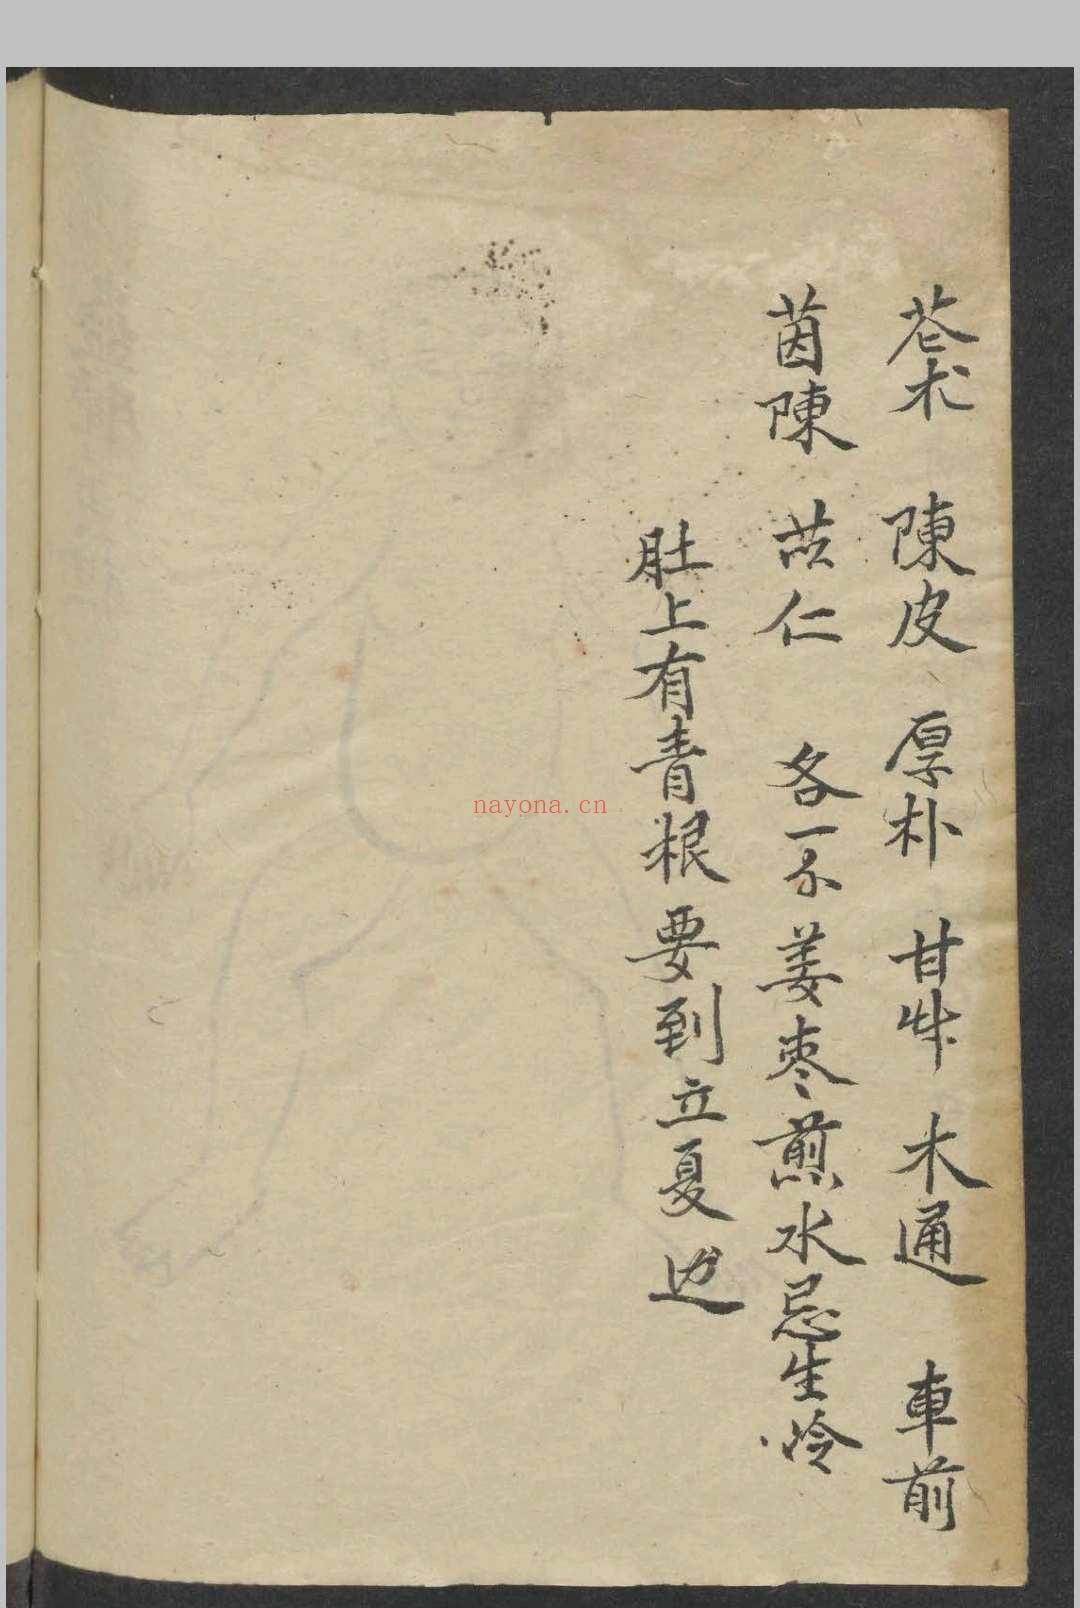 苍术 陳皮 厚朴 甘艸 木通 車前
茵陳 苡仁 各一不 姜枣煎水忌生冷
肚上有青根要到立夏边
nayona.cn